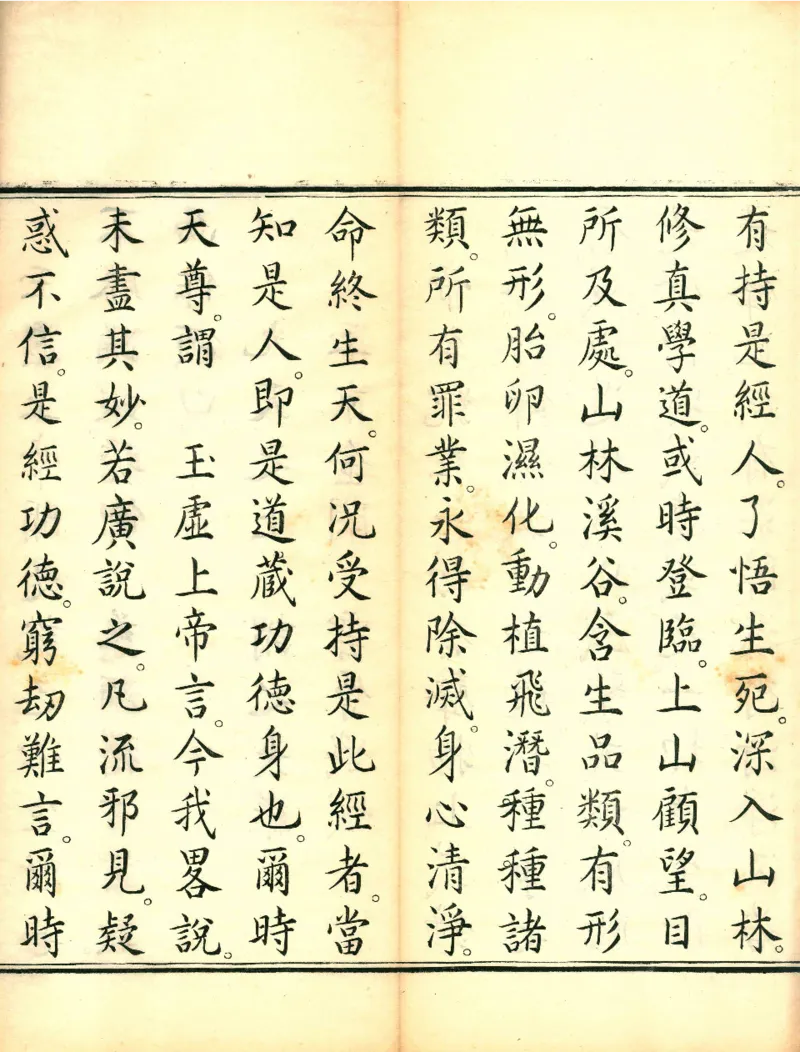 有持是經人。了悟生死。深入山林。
修真學道。或時登臨。上山顧望。目
所及處。山林溪谷。含生品類。有形
無形。胎卵濕化。動植飛潛。種種諸
類。所有罪業。永得除滅。身心清淨。
命終生天。何况受持是此經者。當
知是人。即是道藏功德身也。爾時
天尊。謂　玉虛上帝言。今我畧說。
未盡其妙。若廣說之。凡流邪見。疑
惑不信。是經功德。窮劫難言。爾時